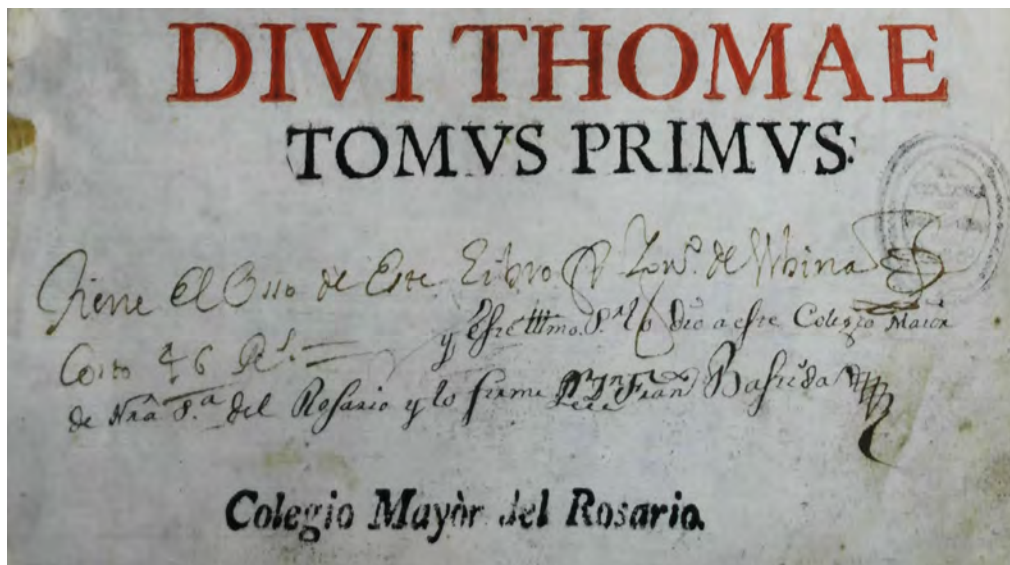 DIVI THOMAE
TOMVS PRIMVS:
Tiene El Vsso de Este Libro Lor.º de Vrbina
Costo 46 Rs.
y este Illmo. S.r lo dio a este Colegio Maior
de Nrâ S.ª del Rosario y lo firmé Fran
Colegio Mayòr del Rosario.